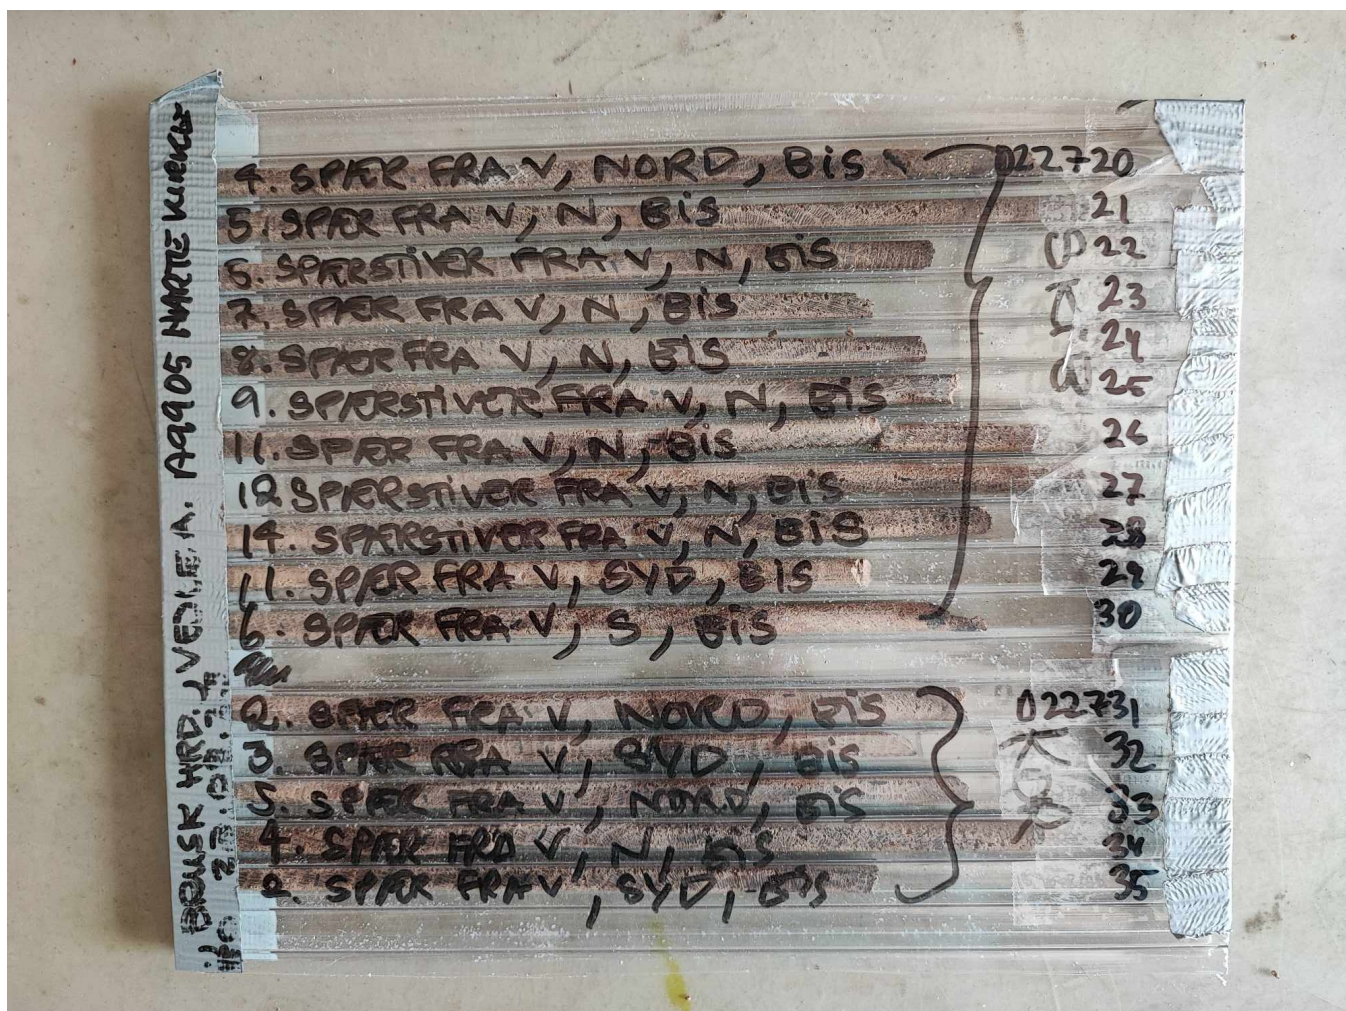 4. SPÆR FRA V, NORD, BIS 022720
5. SPÆR FRA V, N, BIS 21
6. SPÆRSTIVER FRA V, N, BIS 22
7. SPÆR FRA V, N, BIS 23
8. SPÆR FRA V, N, BIS 24
9. SPÆRSTIVER FRA V, N, BIS 25
11. SPÆR FRA V, N, BIS 26
12 SPÆRSTIVER FRA V, N, BIS 27
14. SPÆRSTIVER FRA V, N, BIS 28
11. SPÆR FRA V, SYD, BIS 29
6. SPÆR FRA V, S, BIS 30
2. SPÆR FRA V, NORD, BIS 022731
3. SPÆR FRA V, SYD, BIS 32
5. SPÆR FRA V, NORD, BIS 33
4. SPÆR FRA V, N, BIS 34
2. SPÆR FRA V, SYD, BIS 35
BRUSK HRD., VEJLE A. A9905 HARTE KIRKE